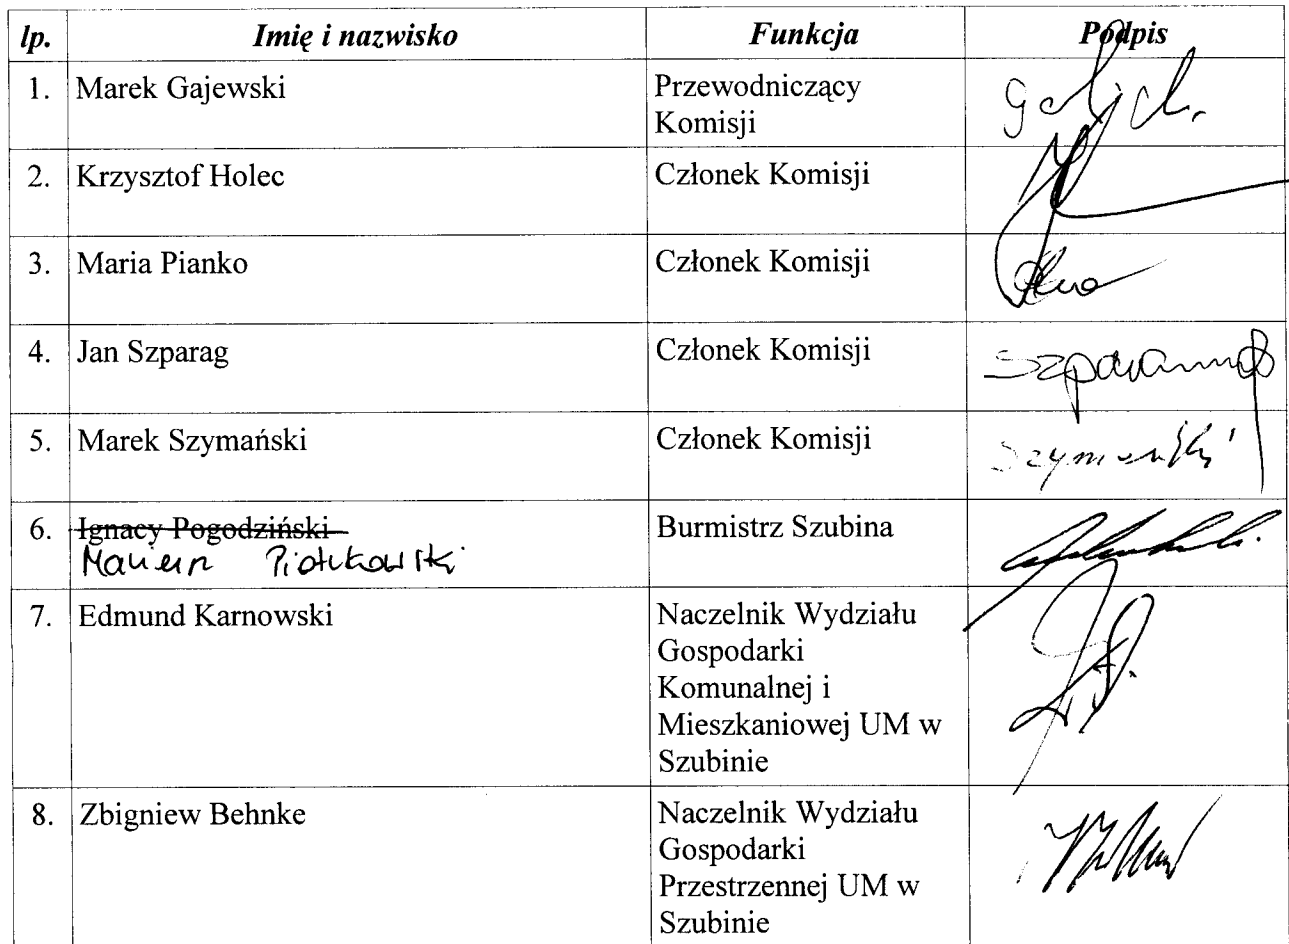 lp. Imię i nazwisko Funkcja Podpis
1. Marek Gajewski Przewodniczący
Komisji
2. Krzysztof Holec Członek Komisji
3. Maria Pianko Członek Komisji
4. Jan Szparag Członek Komisji
5. Marek Szymański Członek Komisji
Szymański
6. Ignacy Pogodziński Burmistrz Szubina
Piotrkowski
7. Edmund Karnowski Naczelnik Wydziału
Gospodarki
Komunalnej i
Mieszkaniowej UM w
Szubinie
8. Zbigniew Behnke Naczelnik Wydziału
Gospodarki
Przestrzennej UM w
Szubinie